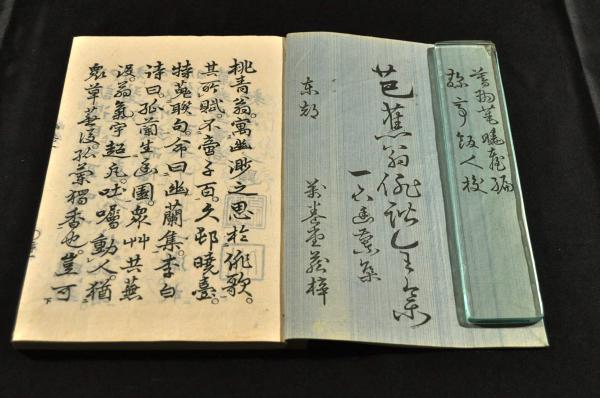 曉臺編
校
芭蕉翁俳諧
一名幽蘭集
東都
萬巻堂藏梓
桃青翁寓幽渺之思於俳歌。
其所賦。不啻千百。久邨曉臺。
特蒐聯句。命曰幽蘭集。李白
詩曰。孤蘭生幽園衆艸共蕪
没。翁氣宇超凡。吐囑動人。猶
衆草蕪没。孤蘭獨香也。豈可